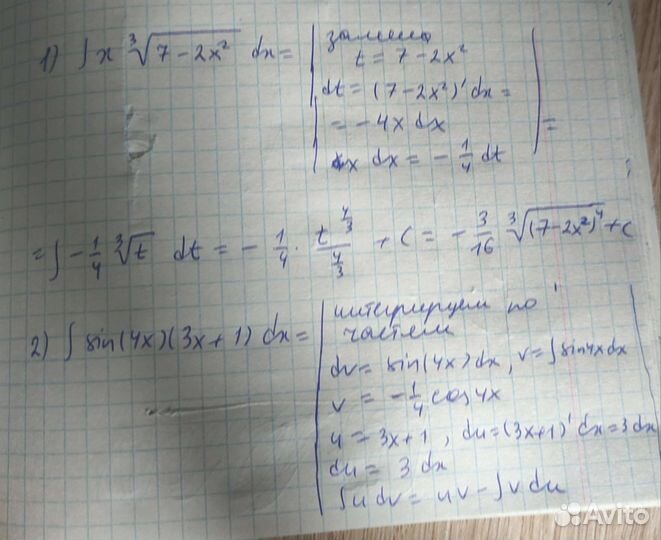 1) ∫ x ∛(7 - 2x²) dx = | замена
t = 7 - 2x²
dt = (7 - 2x²)' dx =
= -4x dx
x dx = - 1/4 dt | =
= ∫ - 1/4 ∛t dt = - 1/4 · t^(4/3) / (4/3) + C = - 3/16 ∛(7-2x²)⁴ + C
2) ∫ sin(4x)(3x+1) dx = | интегрируем по
частям
dv = sin(4x) dx, v = ∫ sin4x dx
v = - 1/4 cos 4x
u = 3x+1, du = (3x+1)' dx = 3 dx
du = 3 dx
∫ u dv = uv - ∫ v du
Avito